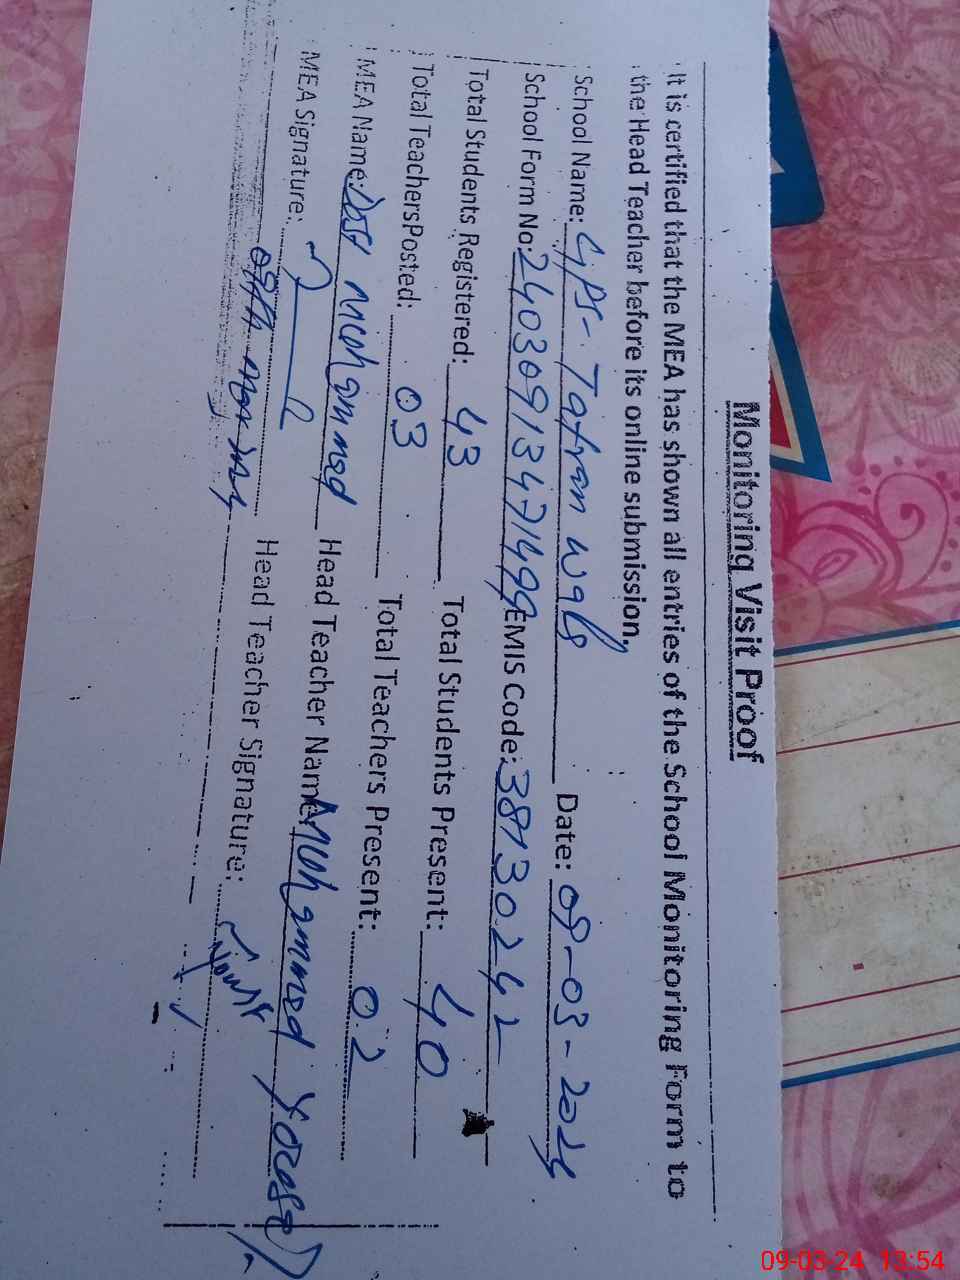 Monitoring Visit Proof
It is certified that the MEA has shown all entries of the School Monitoring Form to
the Head Teacher before its online submission.
School Name: GPS- Tatran wala Date: 09-03-2024
School Form No: EMIS Code: 38130242
Total Students Registered: 43 Total Students Present: 40
Total Teachers Posted: 03 Total Teachers Present: 02
MEA Name: Muhammad Head Teacher Name: Muhammad
MEA Signature: Head Teacher Signature:
09-03-24 13:54